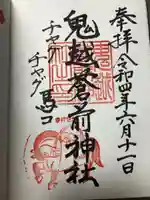 奉拝 令和四年六月十一日
鬼越蒼前神社
チャグチャグ馬コ